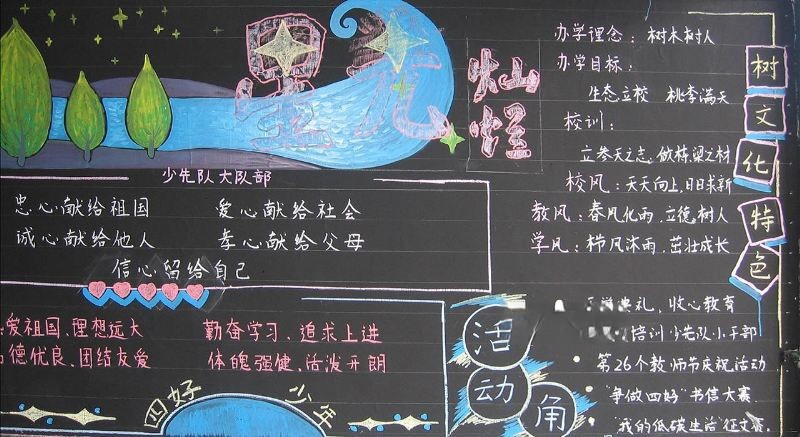 星光
灿烂
少先队大队部
忠心献给祖国 爱心献给社会
诚心献给他人 孝心献给父母
信心留给自己
爱祖国、理想远大 勤奋学习、追求上进
德优良、团结友爱 体魄强健、活泼开朗
四好少年
办学理念：树木树人
办学目标：
生态立校 桃李满天
校训：
立参天之志，做栋梁之材
校风：天天向上，日日求新
教风：春风化雨，立德树人
学风：栉风沐雨，茁壮成长
树文化特色
活动角
典礼，收心教育
培训少先队小干部
第26个教师节庆祝活动
"争做四好"书信大赛
"我的低碳生活"征文赛